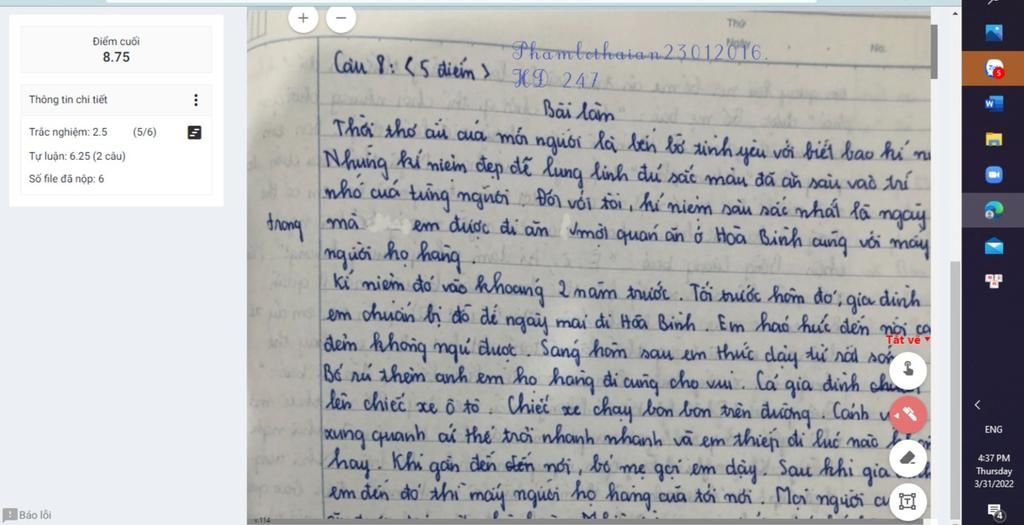 Điểm cuối
8.75
Thông tin chi tiết
Trắc nghiệm: 2.5 (5/6)
Tự luận: 6.25 (2 câu)
Số file đã nộp: 6
Báo lỗi
Thứ
Ngày
No.
Phamlethaian23012016.
HD 247
Câu 8: <5 điểm>
Bài làm
Thời thơ ấu của mỗi người là bến bờ tình yêu với biết bao kí
Những kỉ niệm đẹp đẽ lung linh đủ sắc màu đã ăn sâu vào trí
nhớ của từng người. Đối với tôi, kỉ niệm sâu sắc nhất là ngày
trong mà em được đi ăn một quán ăn ở Hòa Bình cùng với mấy
người họ hàng.
Kỉ niệm đó vào khoảng 2 năm trước. Tối trước hôm đó, gia đình
em chuẩn bị đồ để ngày mai đi Hòa Bình. Em háo hức đến nỗi cả
đêm không ngủ được. Sáng hôm sau em thức dậy từ rất
Bố rủ thêm anh em họ hàng đi cùng cho vui. Cả gia đình
lên chiếc xe ô tô. Chiếc xe chạy bon bon trên đường. Cảnh
xung quanh cứ thế trôi nhanh nhanh và em thiếp đi lúc nào
hay. Khi gần đến nơi, bố mẹ gọi em dậy. Sau khi gia
em đến đó thì mấy người họ hàng của tôi nói. Mọi người
Tất vẽ
v.114
ENG
4:37 PM
Thursday
3/31/2022
5
4